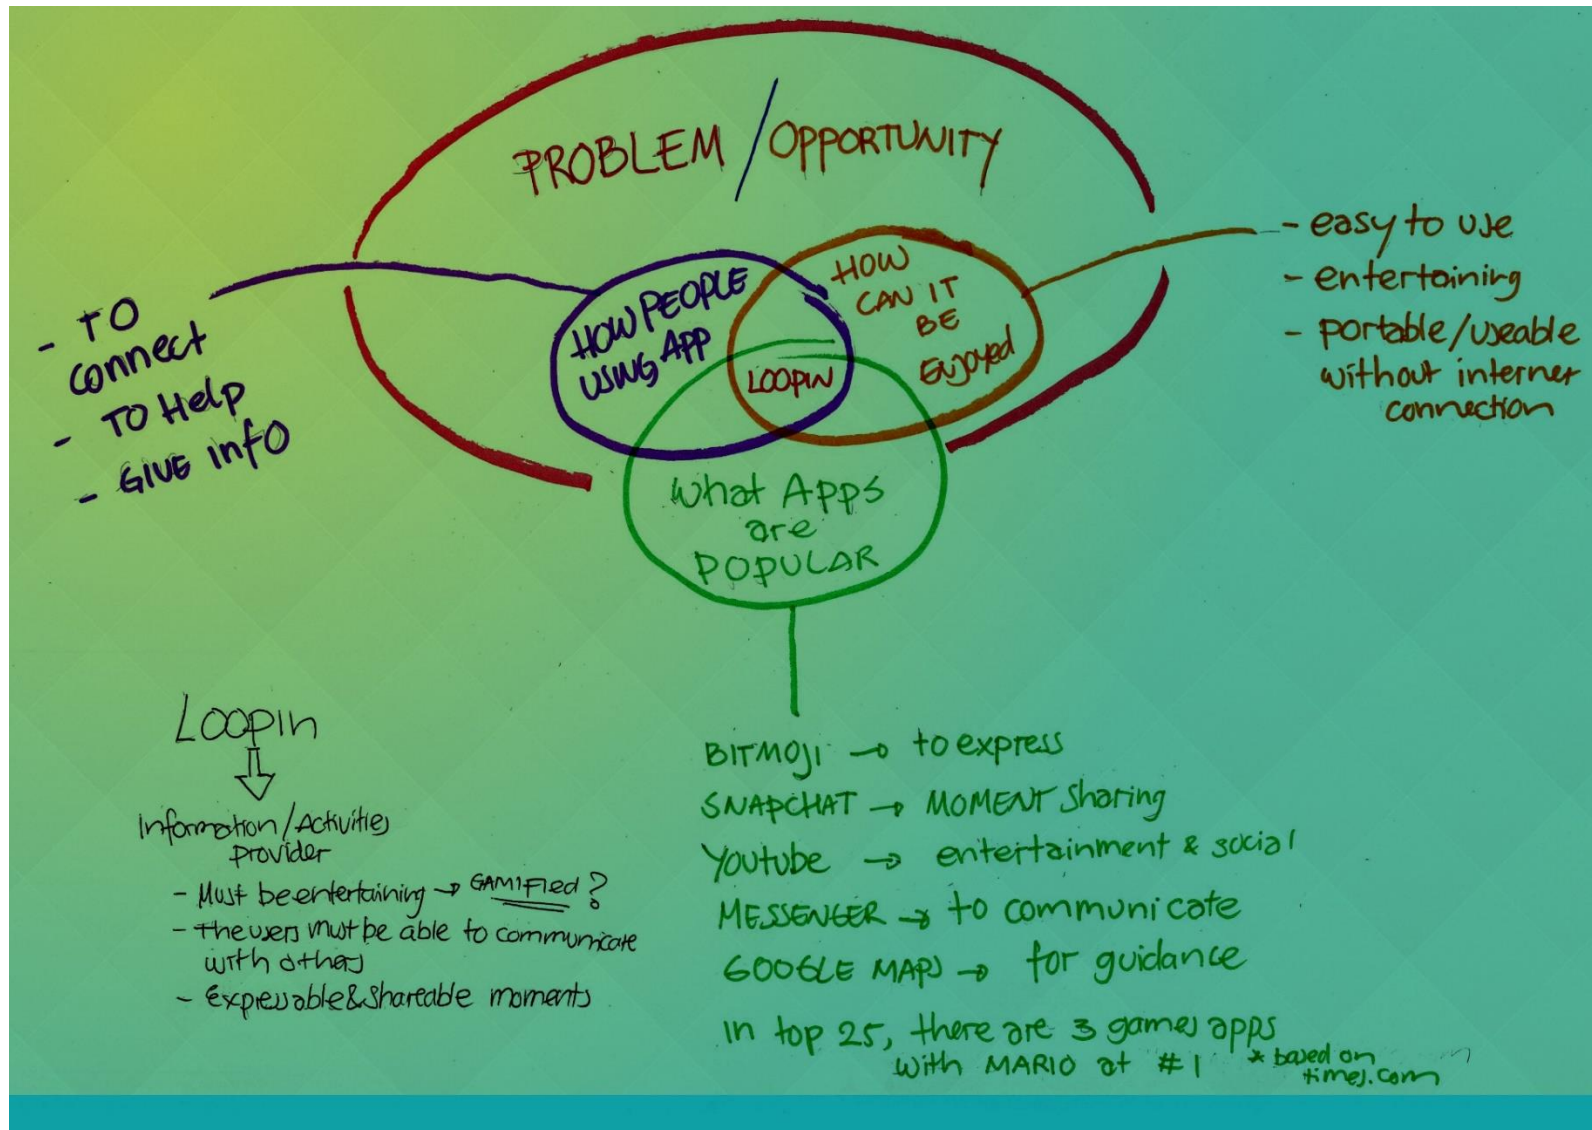 PROBLEM / OPPORTUNITY
HOW PEOPLE
USING APP
HOW
CAN IT
BE
Enjoyed
LOOPIN
What Apps
are
POPULAR
- TO
connect
- TO Help
- GIVE info
- easy to use
- entertaining
- portable/useable
without internet
connection
Loopin
Information/Activities
provider
- Must be entertaining → GAMIFied ?
- The users must be able to communicate
with others
- Expressable & shareable moments
BITMOJI → to express
SNAPCHAT → MOMENT Sharing
Youtube → entertainment & social
MESSENGER → to communicate
GOOGLE MAPS → for guidance
In top 25, there are 3 games apps
with MARIO at #1 * based on
times.com